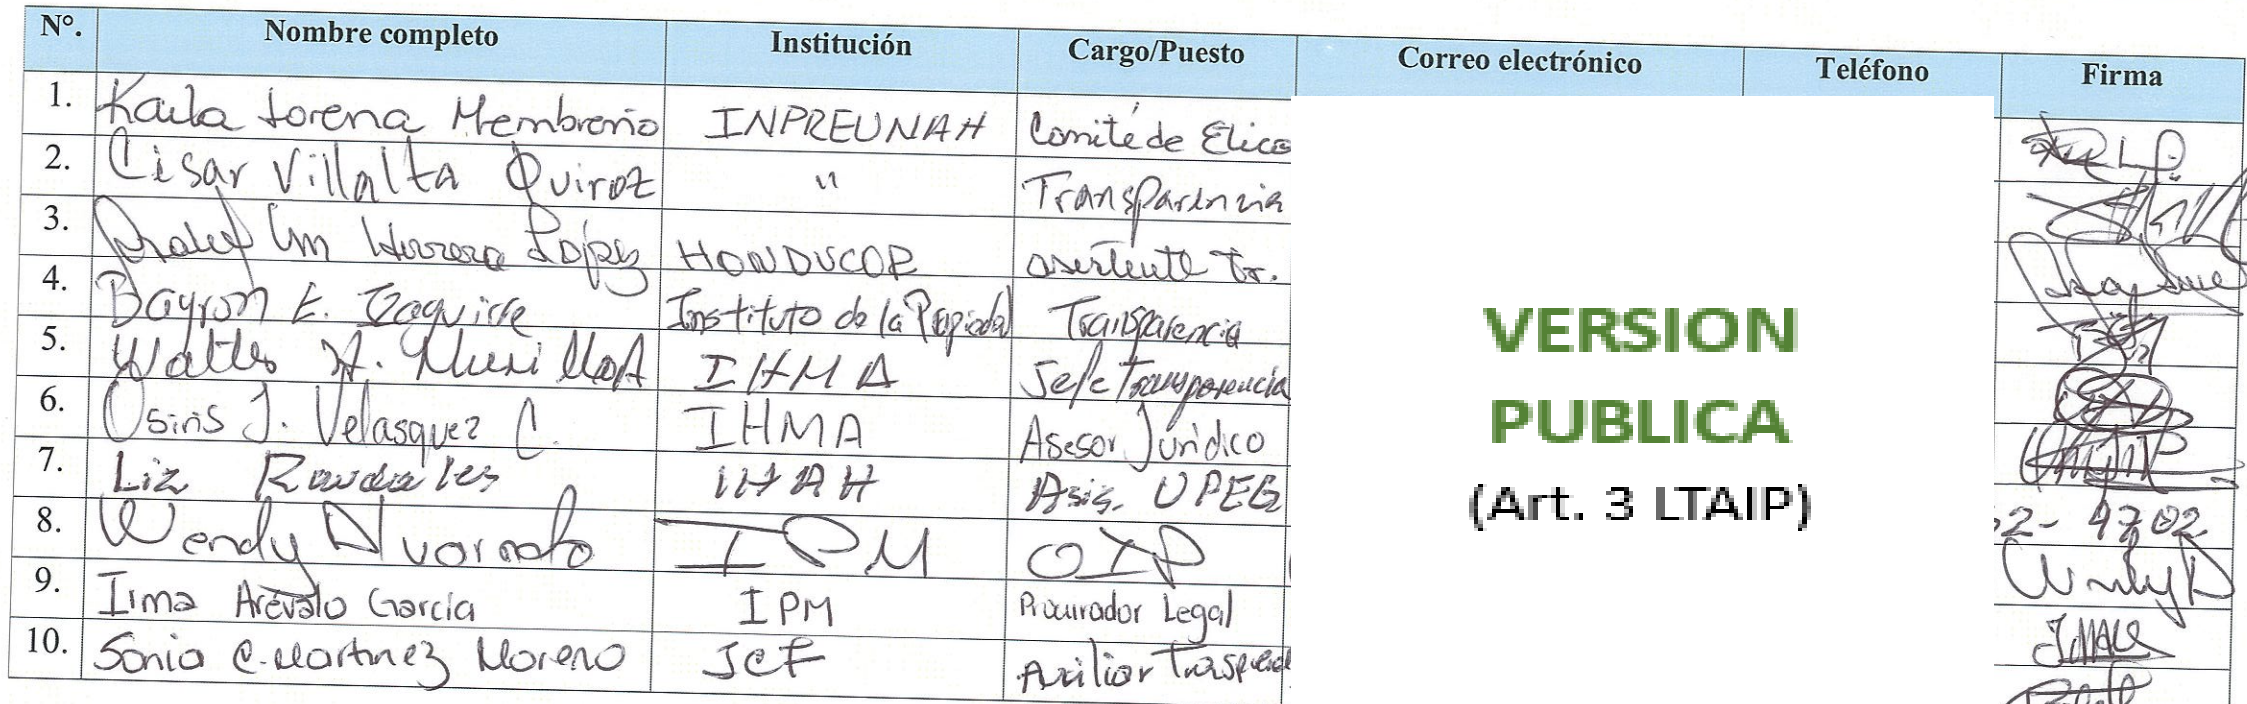 N°. Nombre completo Institución Cargo/Puesto Correo electrónico Teléfono Firma
1. Karla Lorena Membreño INPREUNAH Comité de Etica
2. César Villalta Quiroz " Transparencia
3. Herrera López HONDUCOR Tr.
4. Bayron E. Izaguirre Instituto de la Transparencia
5. A. IHMA Jefe Transparencia
6. Osiris J. Velasquez C. IHMA Asesor Jurídico
7. Liz IHAH Asis. UPEG
8. Wendy Alvarado IPM OIP 2-4702
9. Irma Arévalo García IPM Procurador Legal
10. Sonia C. Martinez Moreno JCF Auxiliar
VERSION
PUBLICA
(Art. 3 LTAIP)